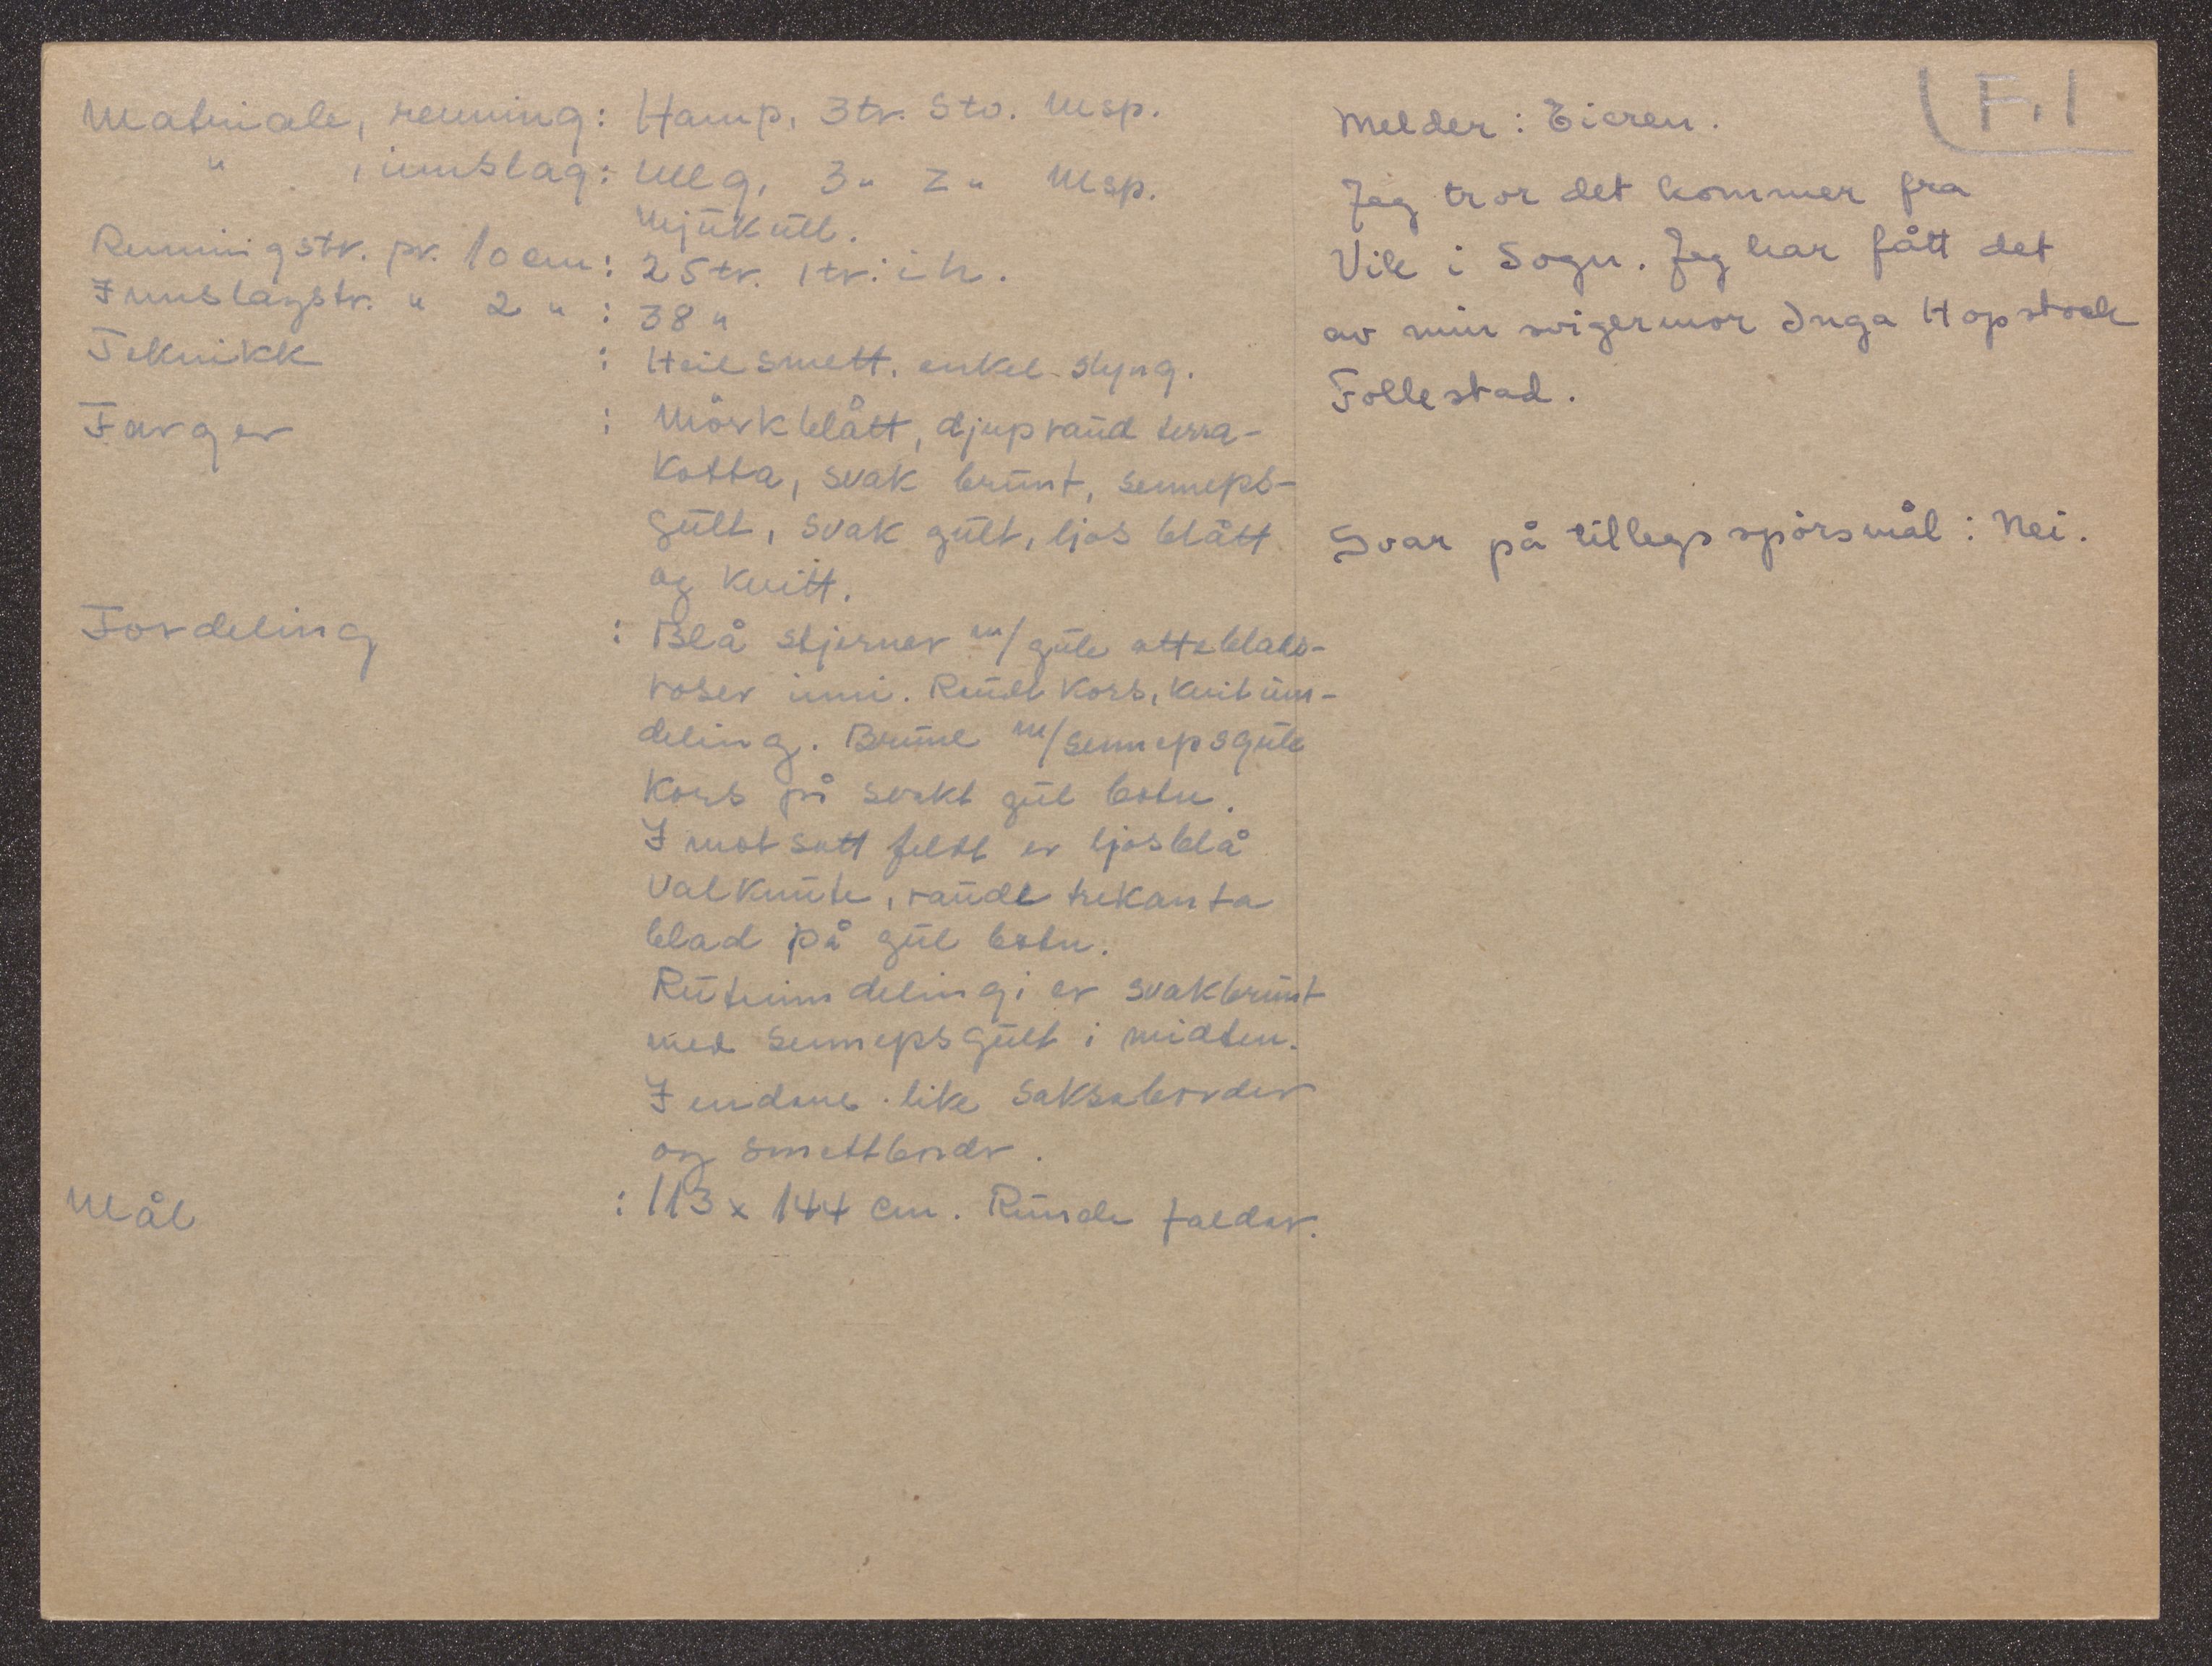 Materiale, renning: Hamp, 3tr. Sto. Msp.
" , innslag: Ullg, 3" Z" Msp.
Mjukull.
Renningstr. pr. 10 cm: 25tr. 1tr. i h.
Innslagstr. " 2 " : 38 "
Teknikk : Heilsmett. enkel slyng.
Farger : Mörkblått, djupraud terra-
kotta, svak brunt, senneps-
gult, svak gult, ljos blått
og kvitt.
Fordeling : Blå stjerner m/ gule atteblads-
roser inni. Raudt kors, kvit inn-
deling. Brune m/ sennepsgule
kors på svakt gul botn.
I motsatt feldt er ljosblå
valknute, raude trekanta
blad på gul botn.
Ruteinndelingi er svakbrunt
med sennepsgult i midten.
I endane like saksaborder
og smettbordr.
Mål : 113 x 144 cm. Runde faldar.
F.1
Melder: Eieren.
Jeg tror det kommer fra
Vik i Sogn. Jeg har fått det
av min svigermor Inga Hopstock
Follestad.
Svar på tilleggsspörsmål: Nei.